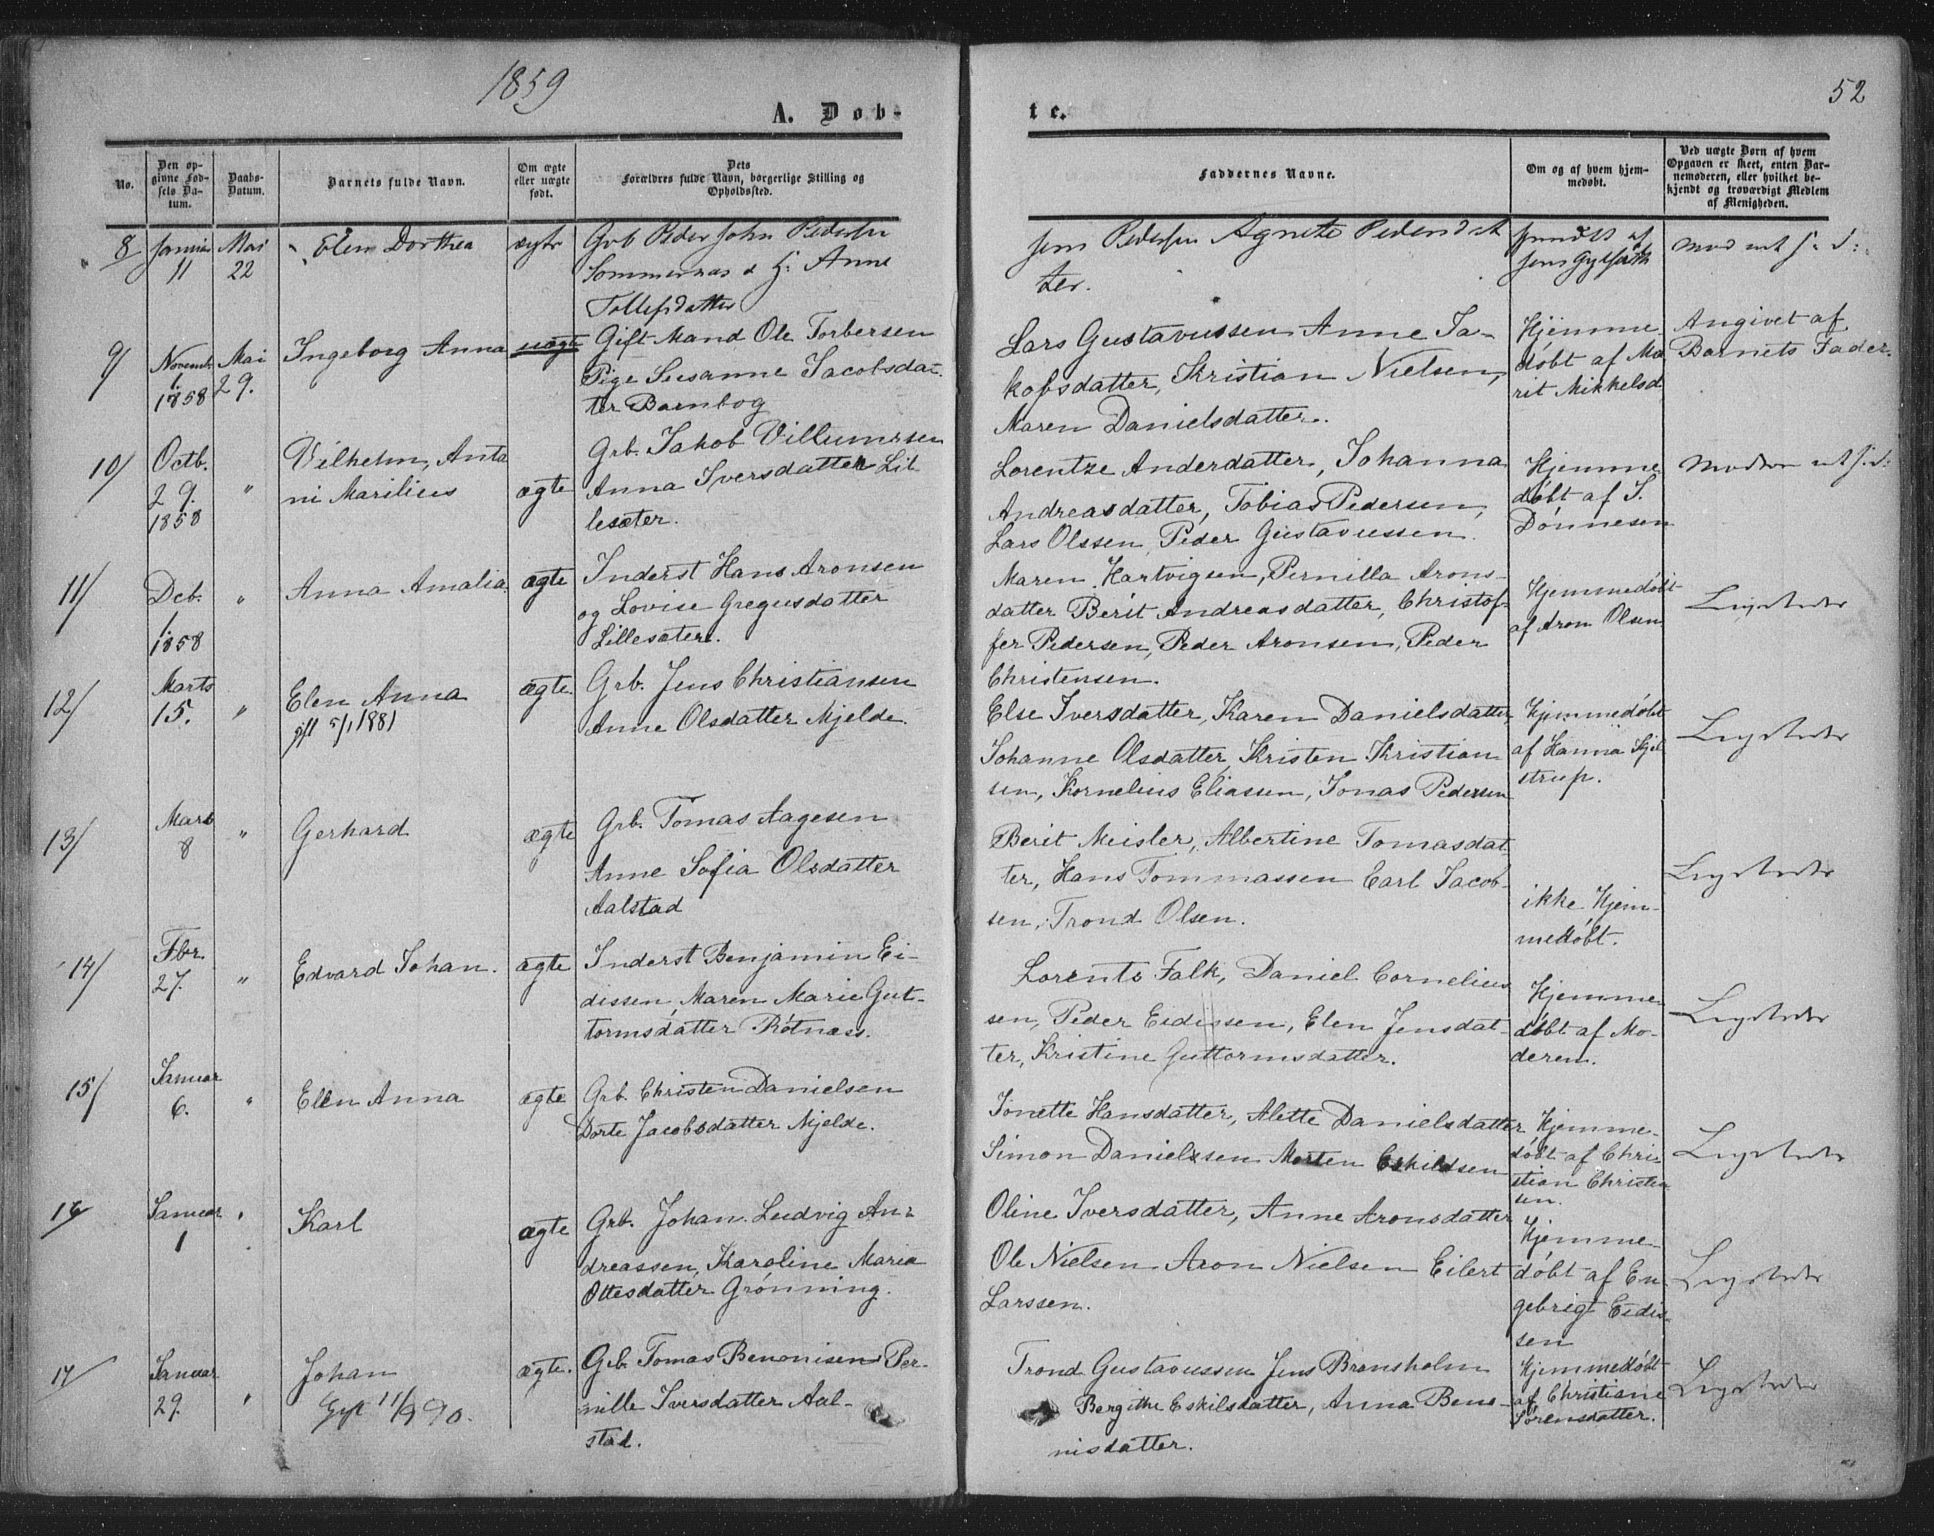 1859
52
A. Døb-
te.
No.
Den op-
givne Fød-
sels Da-
tum.
Daabs-
Datum.
Barnets fulde Navn.
Om ægte
eller uægte
født.
Dets
Forældres fulde Navn, borgerlige Stilling og
Opholdssted.
Faddernes Navne.
Om og af hvem hjem-
medøbt.
Ved uægte Børn af hvem
Opgaven er skeet, enten Bar-
nemoderen, eller hvilket be-
kjendt og troværdigt Medlem
af Menigheden.
8/
Januar
11
Mai
22
Elen Dorthea
ægte
Grb Peder John Pedersen
Sommernæs & H: Anne
Tollefsdatter
Jens Pedersen Agnete Pedersdat
ter.
9/
Novemb.
1.
1858
Mai
29.
Ingeborg Anna
uægte
Gift Mand Ole Torbersen
Pige Susanne Jacobsdat-
ter Barnbog
Lars Gustavussen Anne Ja-
kobsdatter, Kristian Nielsen,
Maren Danielsdatter.
Hjemme
døbt af Ma
rit Mikkelsd
Angivet af
Barnets Fader.
10/
Octb.
29.
1858
"
Vilhelm, Anto
ni Marilius
ægte
Grb. Jakob Villumssen
Anna Iversdatter Lil
lesæter.
Lorentze Anderdatter, Johanna
Andreasdatter, Tobias Pedersen,
Lars Olssen, Peder Gustavussen.
Hjemme
døbt af J.
Dønnesen
11/
Deb.
1.
1858
"
Anna Amalia.
ægte
Inderst Hans Aronsen
og Lovise Gregusdatter
Lillesæter.
Maren Hartvigsen, Pernilla Arons-
datter Berit Andreasdatter, Christof-
fer Pedersen, Peder Aronsen, Peder
Christensen.
Hjemmedøbt
af Aron Olsen
Ligeledes
12/
Marts
15.
"
Elen Anna
gift 5/1 1881
ægte.
Grb. Jens Christiansen
Anne Olsdatter Mjelde.
Else Iversdatter, Karen Danielsdatter,
Johanne Olsdatter, Kristen Kristian
sen, Kornelius Eliassen, Jonas Pedersen
Hjemmedøbt
af Hanna Kjel
strup.
Ligeledes
13/
Mars
8
"
Gerhard
ægte
Grb. Tomas Aagesen
Anne Sofia Olsdatter
Aalstad
Berit Meisler, Albertine Tomasdat
ter, Hans Tommassen Carl Jacob-
sen, Trond Olsen.
ikke Hjem-
medøbt.
Ligeledes
14/
Fbr.
27.
"
Edvard Johan.
ægte
Inderst Benjamin Ei-
dissen, Maren Marie Gut-
tormsdatter Røtnæss.
Lorents Falk, Daniel Cornelius
sen, Peder Eidissen, Elen Jensdat-
ter, Kristine Guttormsdatter.
Hjemme-
døbt af Mo-
deren.
Ligeledes
15/
Januar
6.
"
Elen Anna
ægte
Grb. Christen Danielsen
Dorte Jacobsdatter Mjelde.
Jonette Hansdatter, Alette Danielsdatter
Simon Danielssen Morten Eskildsen
Hjemme-
døbt af Chri-
stian Christia
sen.
Ligeledes
16/
Januar
1
"
Karl
ægte
Grb. Johan Ludvig An-
dreassen, Karoline Maria
Ottesdatter Grønning.
Oline Iversdatter, Anne Aronsdatter
Ole Nielsen Aron Nielsen Eilert
Larssen.
Hjemme-
døbt af En
gebrigt Eidis
sen
Ligeledes
17
Januar
29.
"
Johan
ægte.
Grb. Tomas Benonisen Per-
nille Iversdatter Aal-
stad.
Trond Gustavussen Jens Bronsholm
Bergitte Eskilsdatter, Anna Beno-
nisdatter.
Hjemmedøbt
af Christiane
Sørensdatter.
Ligeledes